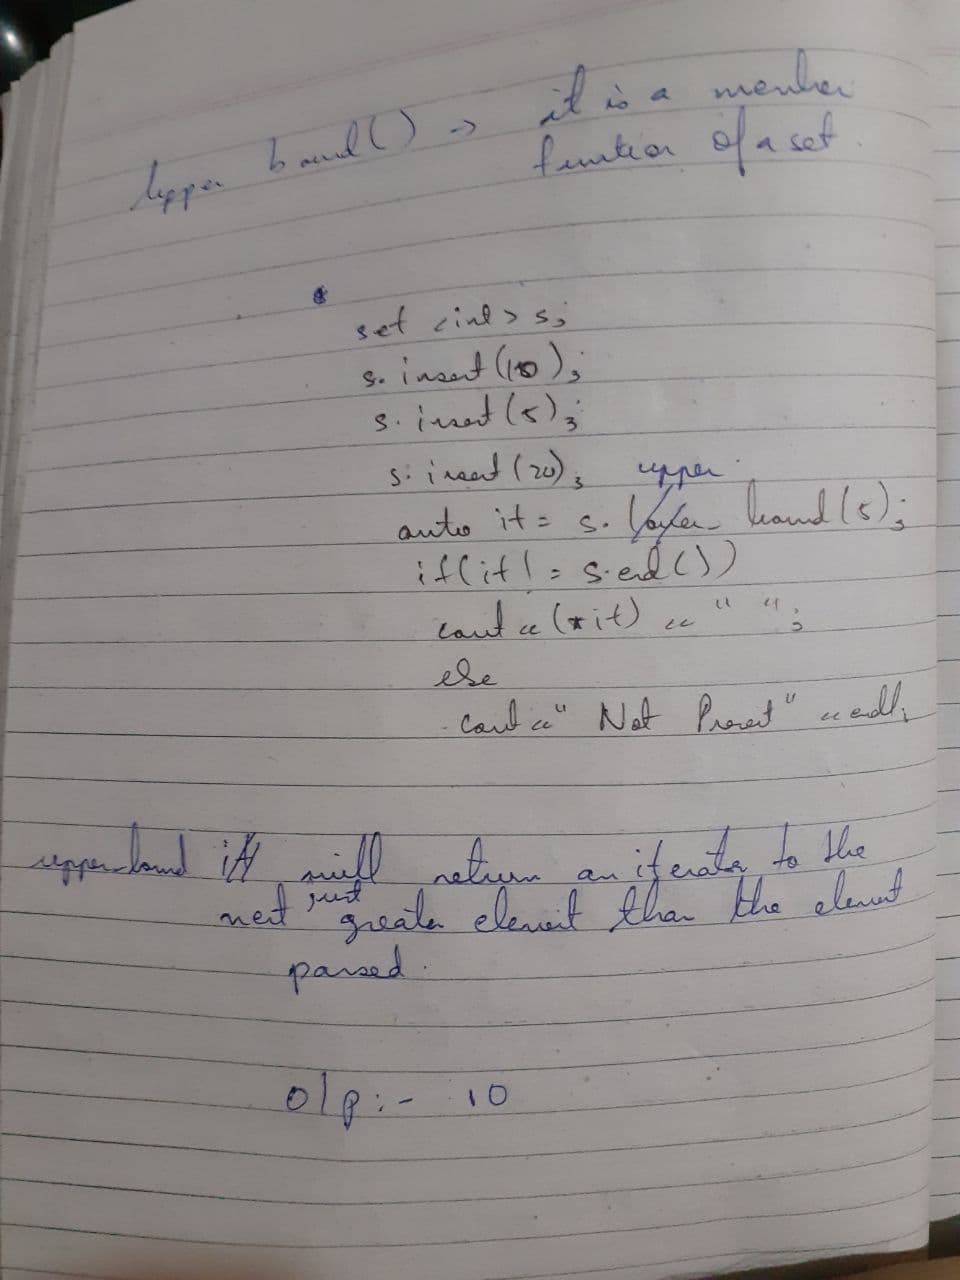 Upper bound() → it is a member
function of a set.
set <int> s;
s. insert (10);
s. insert (5);
s. insert (20);
auto it = s. upper bound (5);
if(it != s.end())
cout << (*it) << " ";
else
cout << " Not Present" << endl;
upper bound it will return an iterator to the
next just greater element than the element
parsed.
o/p :- 10